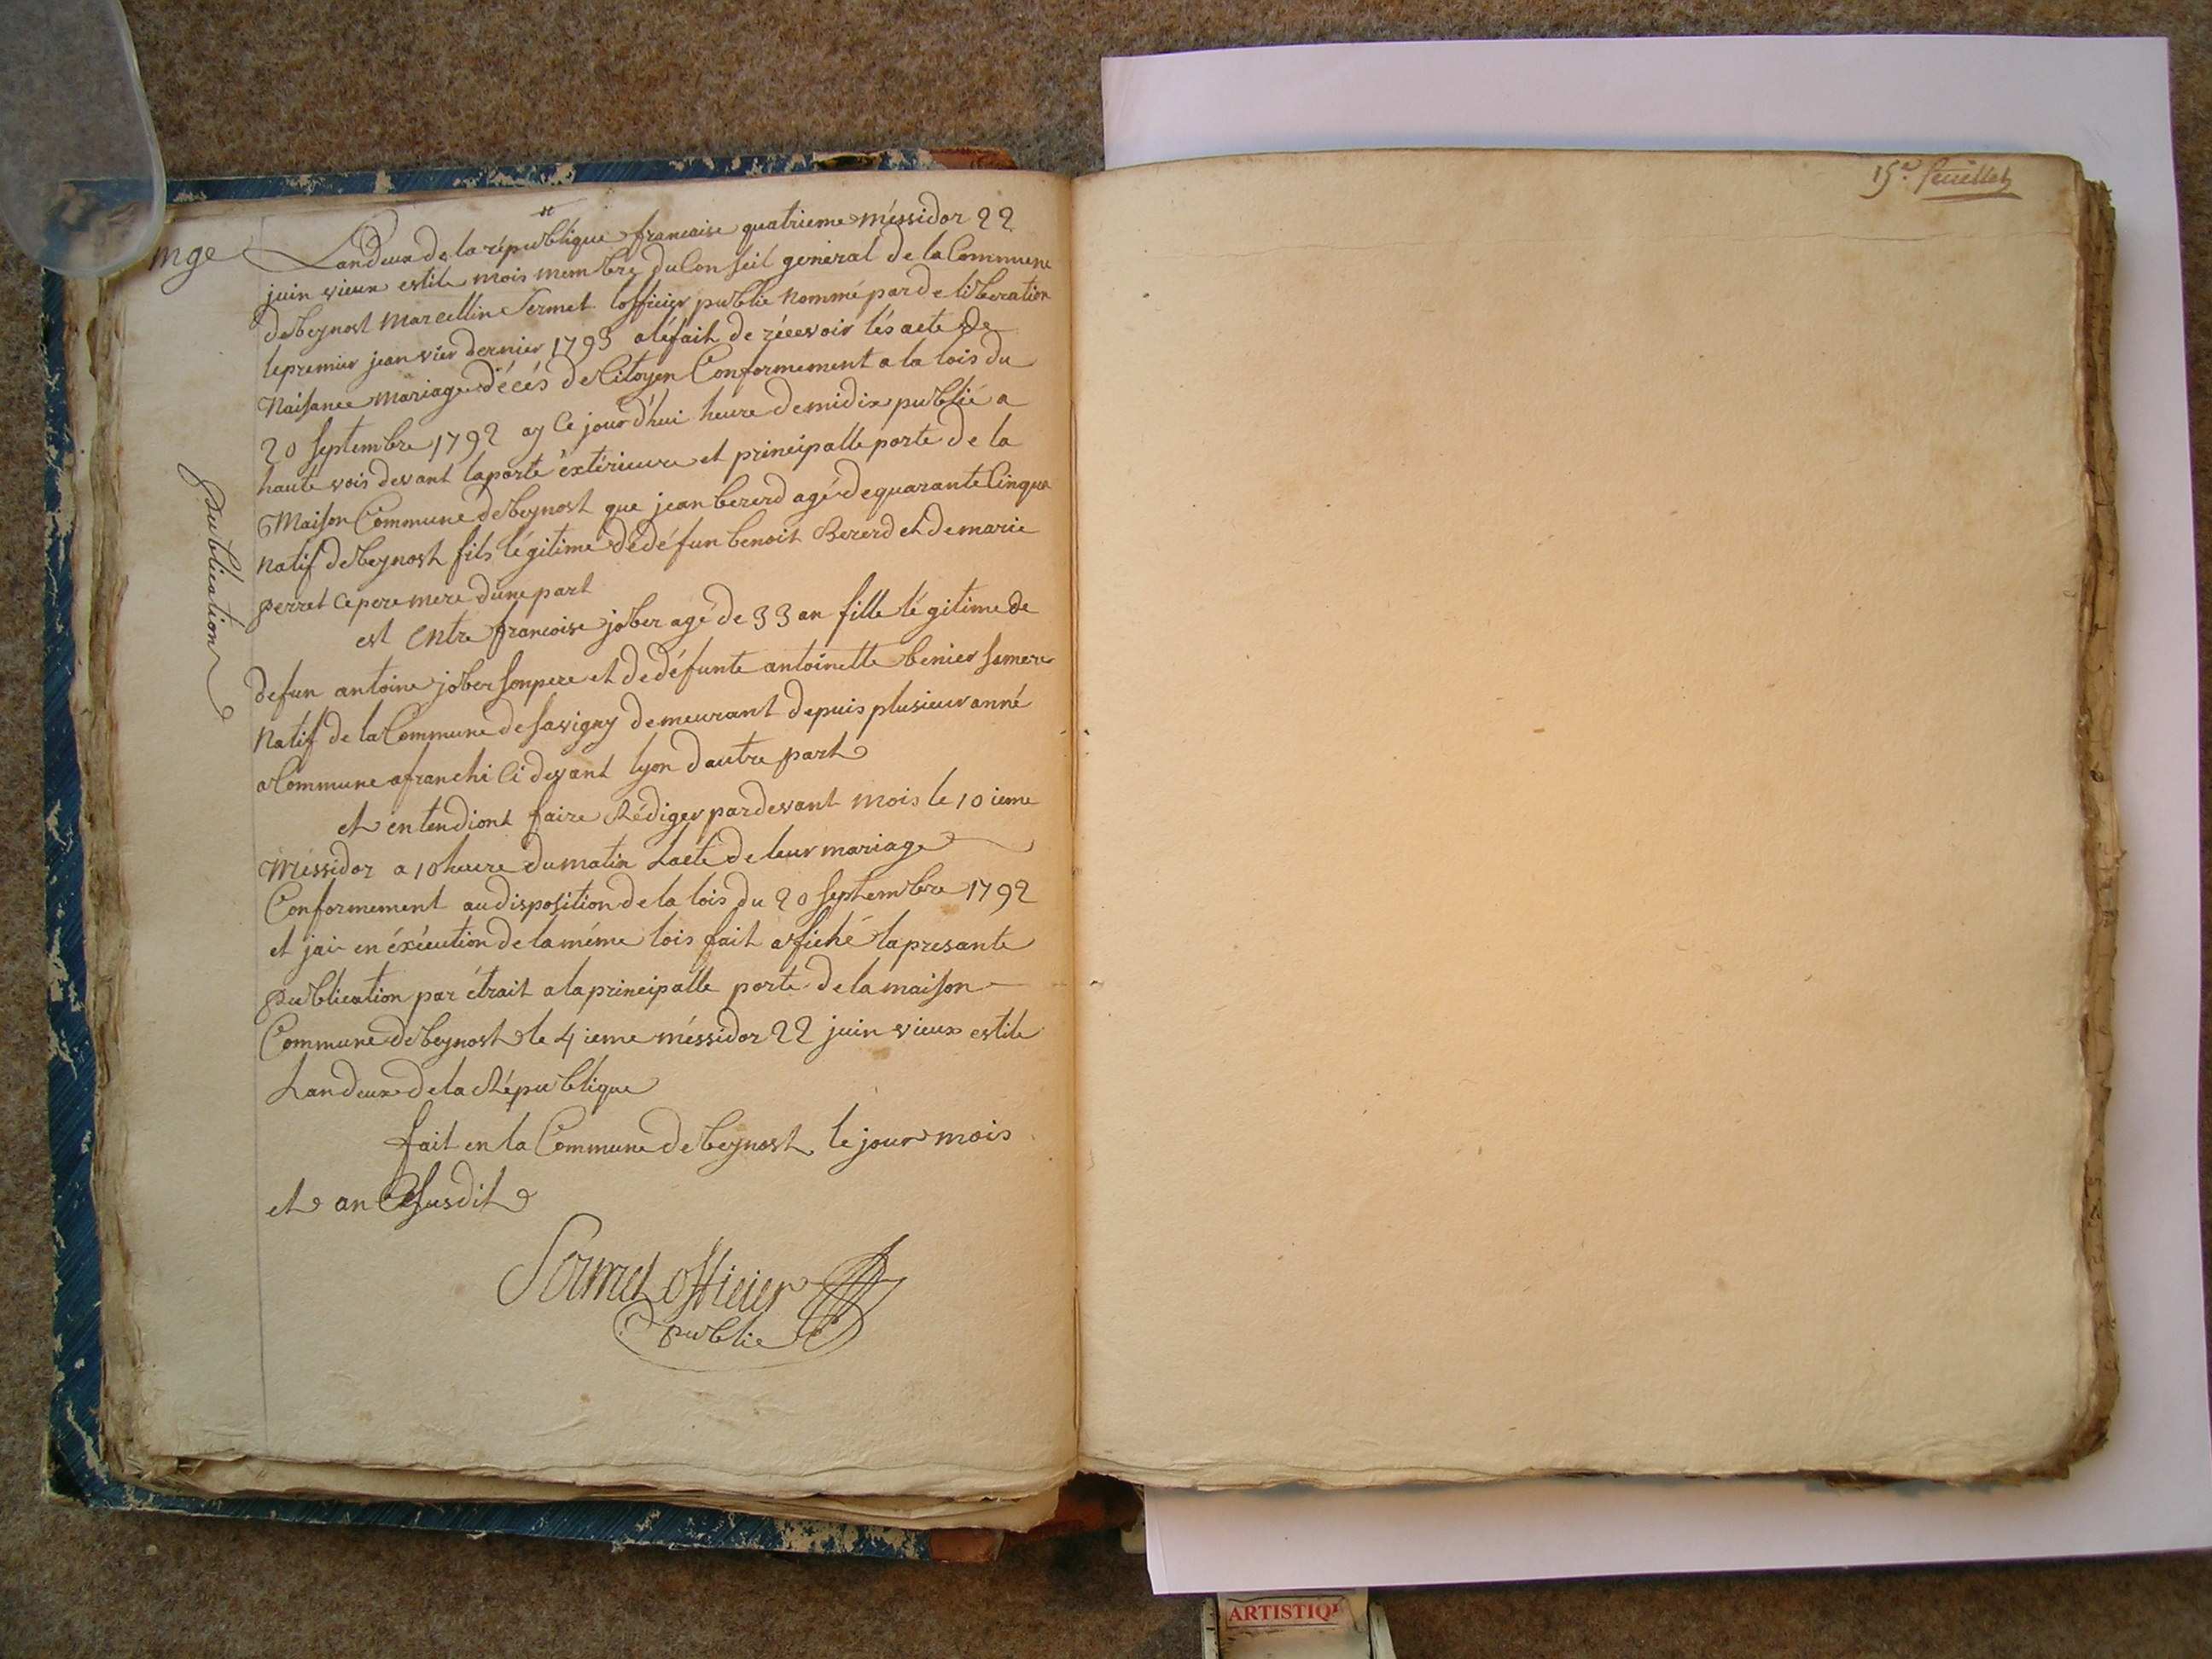 15e feuillet
mge
Publication
Landeux de la république francaise quatrieme méssidor 22
juin vieux estile mois membre du Conseil général de la Commune
de beynost marcellin Sermet lofficier public nommé par deliberation
le premier jeanvier dernier 1793 aléfait de récevoir lés acte de
Naisance mariage décés de Citoyen Conformement a la lois du
20 septembre 1792 ay Ce jourd'hui heure de midix publié a
haute vois devant la porte éxtérieure et principalle porte de la
Maison Commune de beynost que jean bererd agé de quarante Cinque
natif de beynost fils légitime de défun benoit Bererd et de marie
perret Ce pere mere dune part
est Entre francoise jober agé de 33 an fille légitime de
defun antoine jober son pere et de défunte antoinette benier sa mere
Natif de la Commune de savigny demeurant depuis plusieur anné
a Commune afranchi Ci devant lyon dautre part
et entendiont faire Rédiger pardevant mois le 10 ieme
Méssidor a 10 heure du matin Lacte de leur mariage
Conformement au disposition de la lois du 20 septembre 1792
et jai en éxécution de la méme lois fait afiché la presante
publication par étrait a la principalle porte de la maison
Commune de beynost le 4 ieme méssidor 22 juin vieux estile
Landeux de la République
fait en la Commune de beynost le jour mois
et an susdit
Sermet officier
public
ARTISTIQ